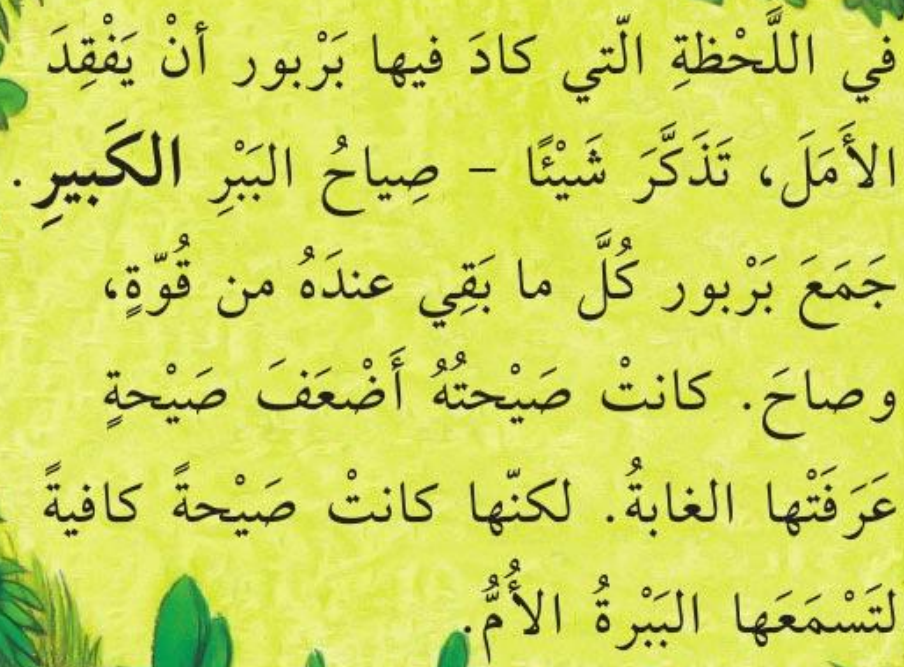 في اللَّحْظةِ الّتي كادَ فيها بَرْبور أنْ يَفْقِدَ
الأَمَلَ، تَذَكَّرَ شَيْئًا – صِياحُ البَبْرِ الكَبيرِ.
جَمَعَ بَرْبور كُلَّ ما بَقِي عندَهُ من قُوّةٍ،
وصاحَ. كانتْ صَيْحتُهُ أَضْعَفَ صَيْحةٍ
عَرَفَتْها الغابةُ. لكنّها كانتْ صَيْحةً كافيةً
لتَسْمَعَها البَبْرةُ الأُمُّ.